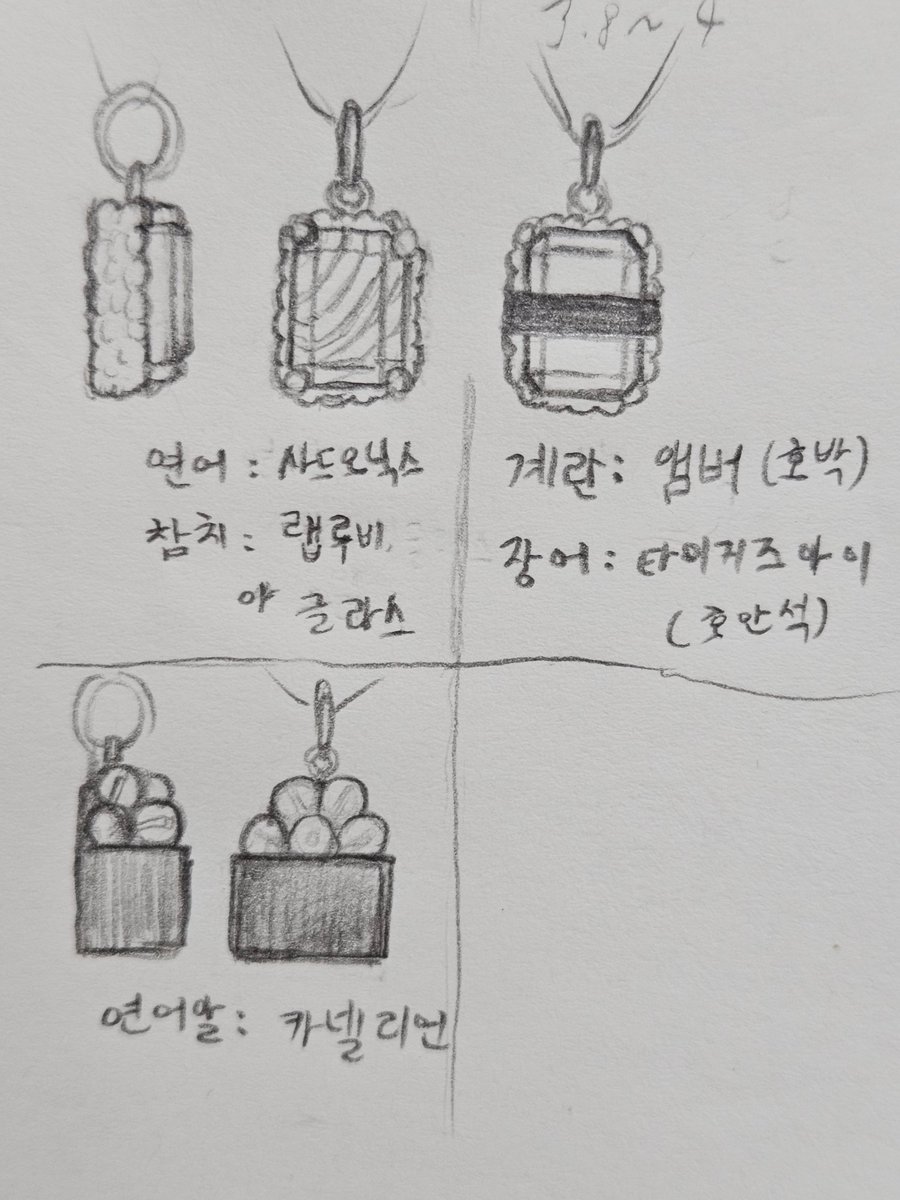 3.8~4
연어 : 사드오닉스
참치 : 랩루비
야 글라스
계란 : 앰버 (호박)
장어 : 타이거즈아이
(호안석)
연어알 : 카넬리언